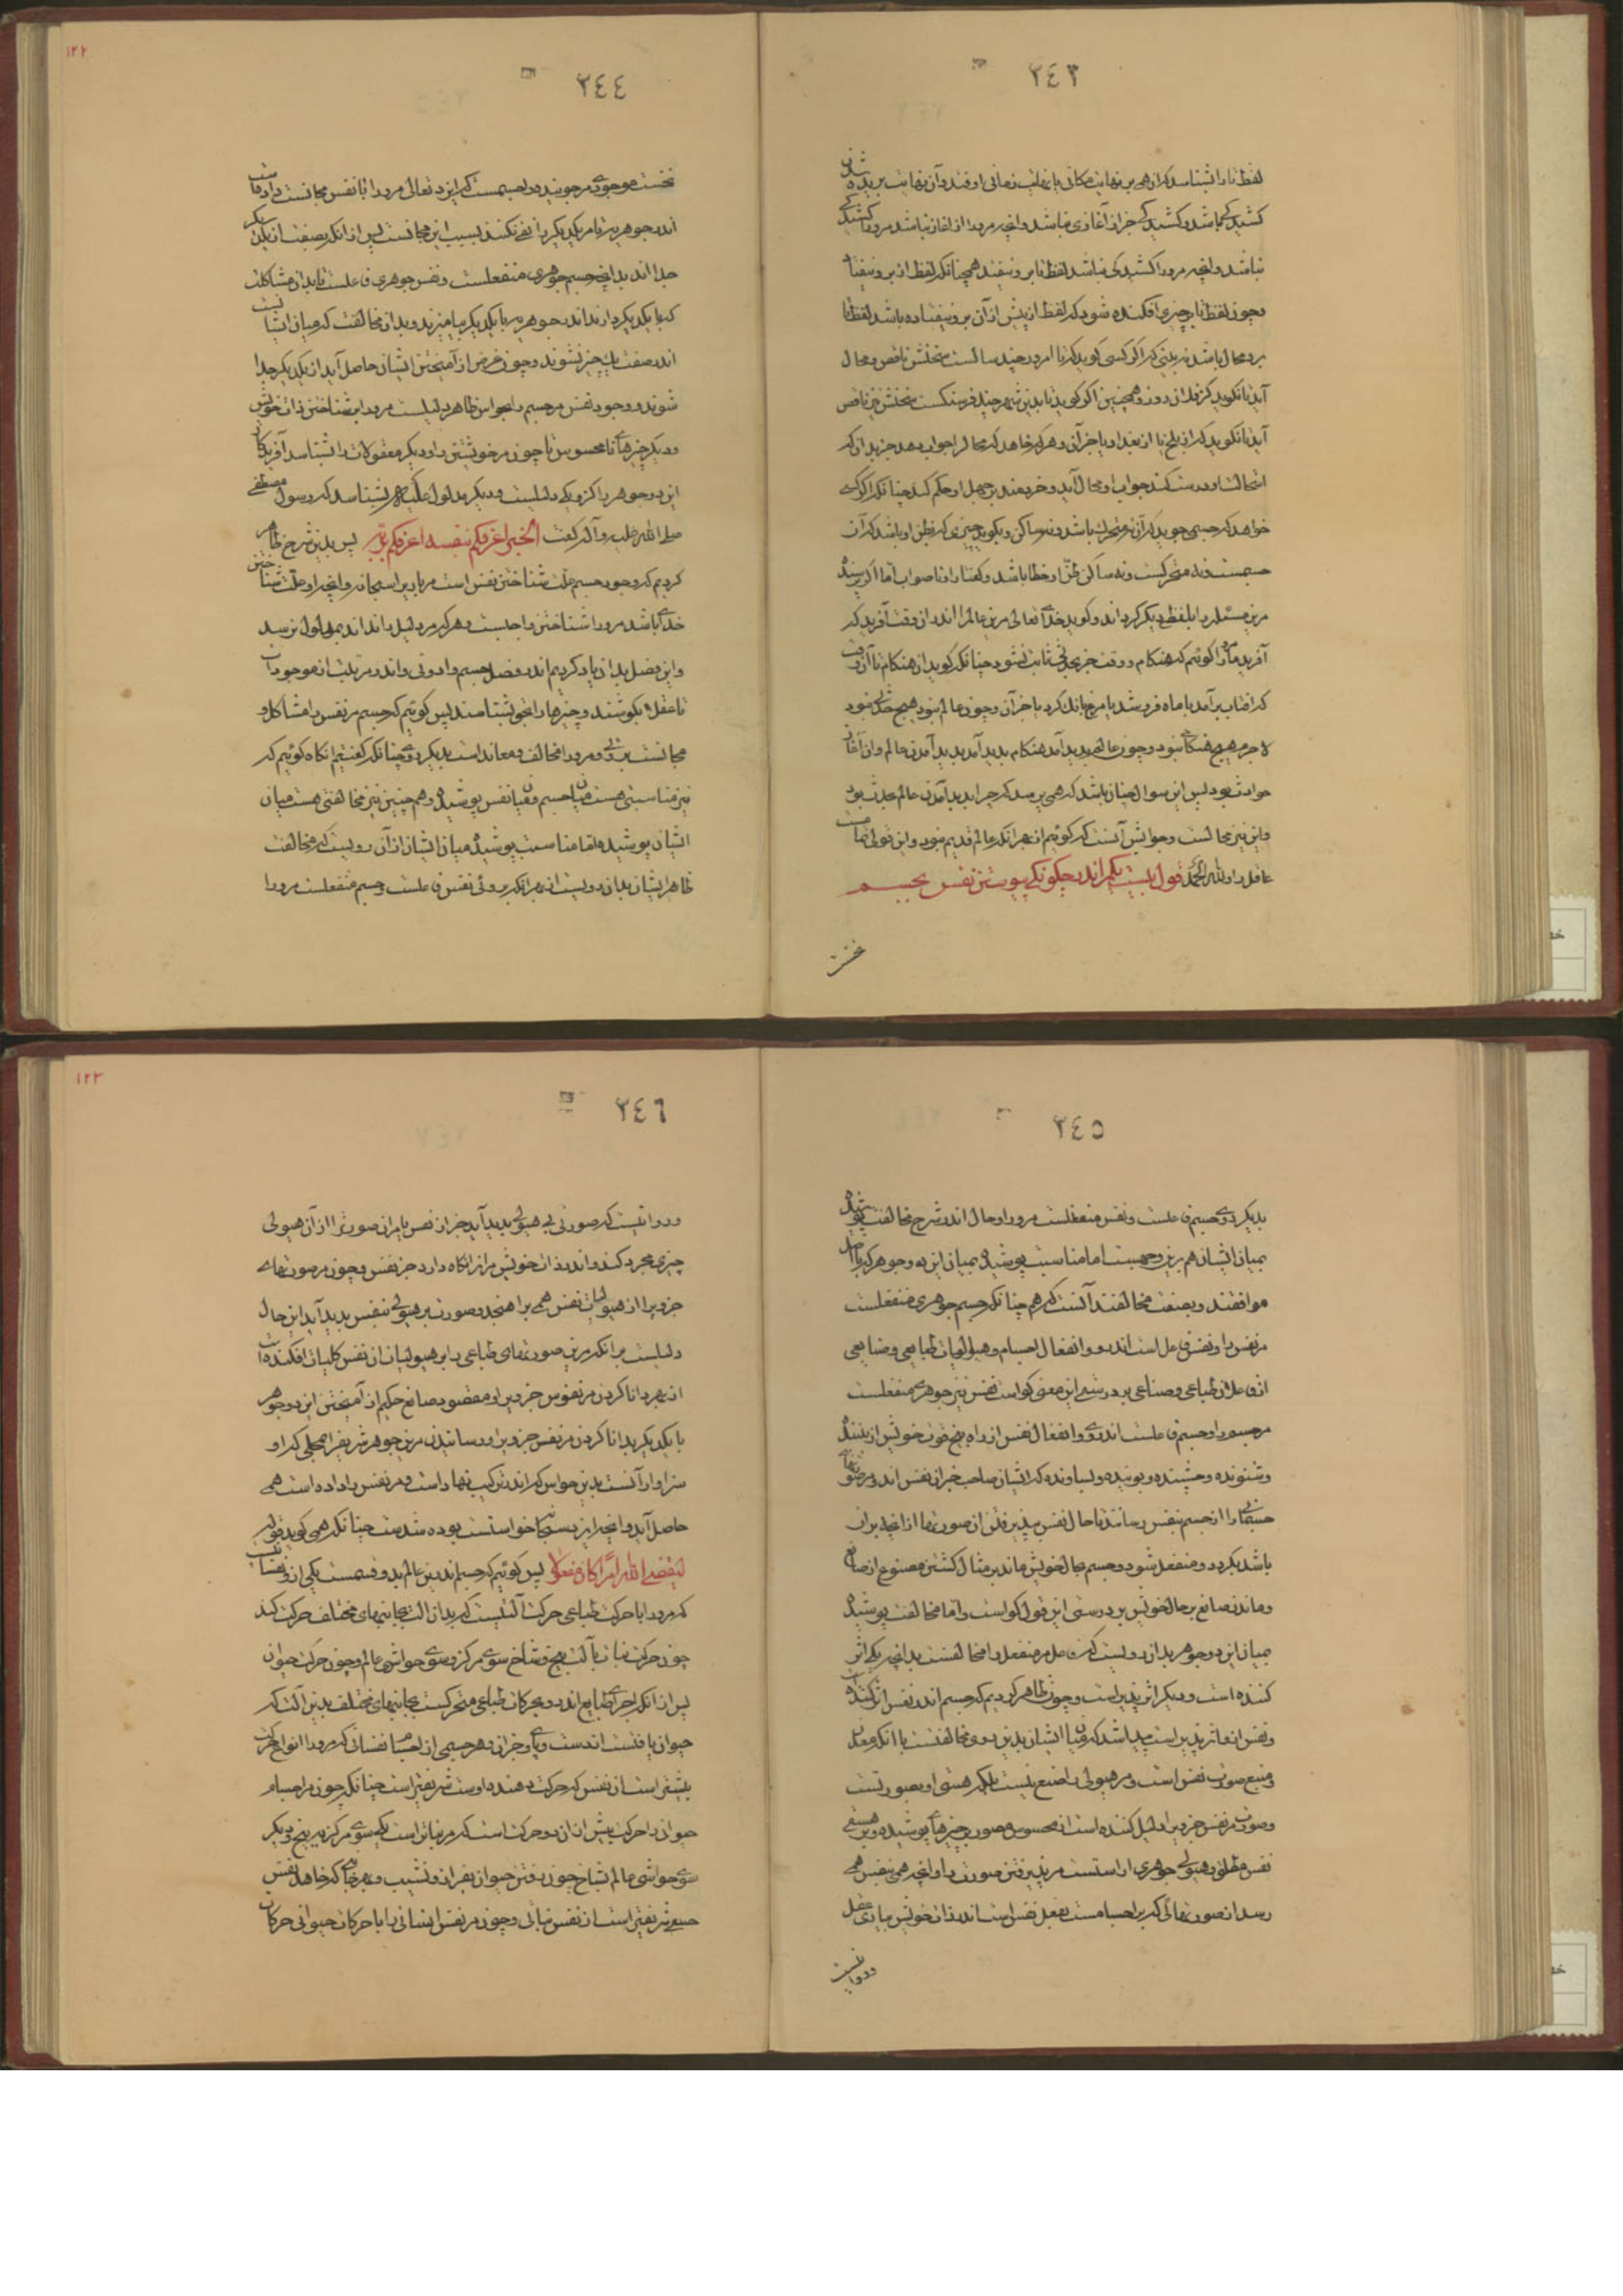 ٢٤٣
لفظ تا را بشناسد که از همی بر نهایت مکانی یا بر نهایت زمانی اوفتد و آن نهایت بریده شدن
کشیدگی باشد و کشیدگی جز از آغازی نباشد و آنچه مرورا از آغاز نباشد مرورا کشیدگی
نباشد و آنچه مرورا کشیدگی نباشد لفظ تا برو نیفتد همچنانکه لفظ از برو نیفتاد
و چون لفظ تا بر چیزی افکنده شود که لفظ از پیش از آن برو نیفتاده باشد لفظ تا
برو محال باشد نه بینی که اگر کسی گوید که تا امروز چند سالست سخنش ناقص و محال
آید تا نگوید که از فلان روز و همچنین اگر گوید تا بدین شهر چند فرسنگست سخنش نیز ناقص
آید تا نگوید که از بلخ یا از بغداد یا جز آن و هر که خواهد که محال را جواب دهد جز بدان که
استحالت او درست کند جواب او محال آید و خردمند بر جهل او حکم کند چنانکه اگر کسی
خواهد که جسمی جوید که آن نه متحرک باشد و نه ساکن و بگوید چیزی که بظن او باشد که آن
جسمست و نه متحرکست و نه ساکن ظن او خطا باشد و گفتار او ناصواب اما اگر پرسنده
مرین مسئله را بلفظی دیگر گرداند و گوید خدای تعالی مرین عالم را اندر آن وقت آفرید که
آفرید مر او را گوئیم که هنگام و وقت جز بحرکتی ثابت نشود چنانکه گوید از هنگام تا آن وقت
که آفتاب برآمد یا ماه فرو شد یا مرغ بانگ کرد یا جز آن و چون عالم نبود هیچ حدثی نبود
لاجرم هیچ هنگامی نبود و چون عالم پدید آمد هنگام پدید آمد پدید آمدن عالم و آن آغاز
حوادث بود پس این سوال چنان باشد که همی پرسد که چرا پدید آمدن عالم محدث بود
و این نیز محالست و جوابش آنست که گوئیم از بهر آنکه عالم قدیم نبود و این قولی تمامست
عاقل را و لله الحمد قول بیست یکم اندر چگونگی پیوستن نفس بجسم
نخست
١٢٢
٢٤٤
نخست موجودی مر جوینده را جسمست که ایزد تعالی مرورا با نفس مجانست داد تا
اندر جوهریت تا مر یکدیگر را نفی نکنند بسبب این مجانست پس از آنکه بصفت از یکدیگر
جدا اند بدانچه جسم جوهری منفعلست و نفس جوهری فاعلست تا بدان مشاکلت
که با یکدیگر دارند اندر جوهریت با یکدیگر بیامیزند و بدان مخالفت که میان ایشانست
اندر صفت یک چیز نشوند و چون غرض از آمیختن ایشان حاصل آید از یکدیگر جدا
شوند و وجود نفس مر جسم را بحواس ظاهر دلیلست مرورا بشناختن ذات خویش
و دیگر چیزهای نامحسوس تا چون مر خویشتن را و دیگر معقولات را بشناسد آفریدگار
این دو جوهر را کز و یکی دلیلست و دیگر مدلول علیه بشناسد که رسول مصطفی
صلی الله علیه و آله گفت الخبر اعرفکم بنفسه اعرفکم بربه پس بدین شرح ظاهر
کردیم که وجود جسم علت شناختن نفس است مر باری را سبحانه و آنچه او علت شناختن
خدای باشد مرورا شناختن واجبست و هر که مر دلیل را نداند بمدلول نرسد
و این فصل بدان یاد کردیم اندر فضل جسم و ادونی و اندر مرتبت از موجودات
تا عقلا بکوشند و چیزها را بحق بشناسند پس گوئیم که جسم مر نفس را مشاکل و
مجانست بروی و مرورا مخالف و معاندست بدیگر روی چنانکه گفتیم آنگاه گوئیم که
نیز مناسبتی هست میان جسم و میان نفس پوشیده و هم چنین نیز مخالفتی هست میان
ایشان پوشیده اما مناسبت پوشیده میان ایشان از آن رویست که مخالفت
ظاهر ایشان بدان رویست از بهر آنکه بروئی نفس فاعلست و جسم منفعلست مرورا
٢٤٥
بدیگر روی جسم فاعلست و نفس منفعلست مرورا و حال اندر شرح مخالفت پوشیده
بمیان ایشان هم برین وجهست اما مناسبت پوشیده بمیان این دو جوهر که باصل
موافقند و بصفت مخالفند آنست که هم چنانکه جسم جوهری منفعلست
مر نفس را و نفس فاعل است اندرو و انفعال اجسام و هیولیات طباعی و صناعی
از فاعلان طباعی و صناعی بر درستی این معنی گواست نفس نیز جوهری منفعلست
مر جسم را و جسم فاعلست اندروی و انفعال نفس از راه پنج قوت خویش از بیننده
و شنونده و چشنده و بوینده و بساونده که ایشان صاحب خبران نفس اند و مر صورتهای
جسمی را از جسم بنفس رسانند تا حال نفس بپذیرفتن از صورتها از آنچه بران
باشد بگردد و منفعل شود و جسم بحال خویش ماند بر مثال گشتن مصنوع از صانع
و ماندن صانع بر حال خویش بر درستی این قول گواست و اما مخالفت پوشیده
میان این دو جوهر بدان رویست که فاعل مر منفعل را مخالفست بدانچه یکی اثر
کننده است و دیگر اثر پذیر است و چون ظاهر کردیم که جسم اندر نفس اثر کننده است
و نفس ازو اثر پذیر است پیدا شد که میان ایشان بدین رو مخالفتست با آنکه معدن
و منبع صورت نفس است و مر هیولی را صنع نیست بلکه هستی او بصورتست
و صورت مر نفس جزوی را دلیل کننده است از محسوس و مصور بر چیزهای پوشیده و برین هستی
نفس مطلق و هیولی جوهری اراستست مر پذیرفتن صورت را و آنچه همی بنفس همی
رسد از صورتهائی که بر اجسامست بفعل نفس است اندر ذات خویش بیاری عقل
و روا نیست
١٢٣
٢٤٦
و روا نیست که صورتی بی هیولی پدید آید جز از نفس یا مر آن صورت را از آن هیولی
چیزی مجرد کند و اندر ذات خویش مر آنرا نگاه دارد جز نفس و چون مر صورتهای
جزوی را از هیولیات نفس همی برآهنجد و صورت بر هیولی بنفس پدید آید این حال
دلیلست برآنکه مرین صورتهای طباعی را برین هیولیات آن نفس کلیات افکنده است
از بهر دانا کردن مر نفوس جزوی را و مقصود صانع حکیم از آمیختن این دو جوهر
با یکدیگر دانا کردن مر نفس جزوی را و رسانیدن مرین جوهر شریف را بمحلی که او
سزاوار آنست بدین حواس که اندرین ترکیب نهاده است و مر نفس را داده است همی
حاصل آید و آنچه ایزد سبحانه خواستست بوده شدست چنانکه همی گوید قوله
لیقضی الله امرا کان مفعولا پس گوئیم که جسم اندرین عالم بدو قسمست یکی ازو نفسانیست
که مرورا با حرکت طباعی حرکت آلتیست که بدان آلت بجانبهای مختلف حرکت کند
چون حرکت نبات بآلت بیخ و شاخ سوی مرکز و سوی حواشی عالم و چون حرکت حیوان
پس از آنکه اجزای طبایع اندرو بحرکات طباعی متحرکست بجانبهای مختلف بدین آلت که
حیوان یافتست از دست و پای و جز آن و هر جسمی از اجسام نفسانی که مرورا انواع حرکت
بیشتر است آن نفس که حرکت دهنده اوست شریفتر است چنانکه چون مر اجسام
حیوانی را حرکت بیش از آن دو حرکت است که مر نباتراست یکی سوی مرکز به بیخ و دیگر
سوی حواشی عالم بشاخ چون رفتن حیوان بفراز و نشیب و بهر جای که خواهد نفس
حسی شریفتر است از نفس نباتی و چون مر نفس انسانی را با حرکات حیوانی حرکات